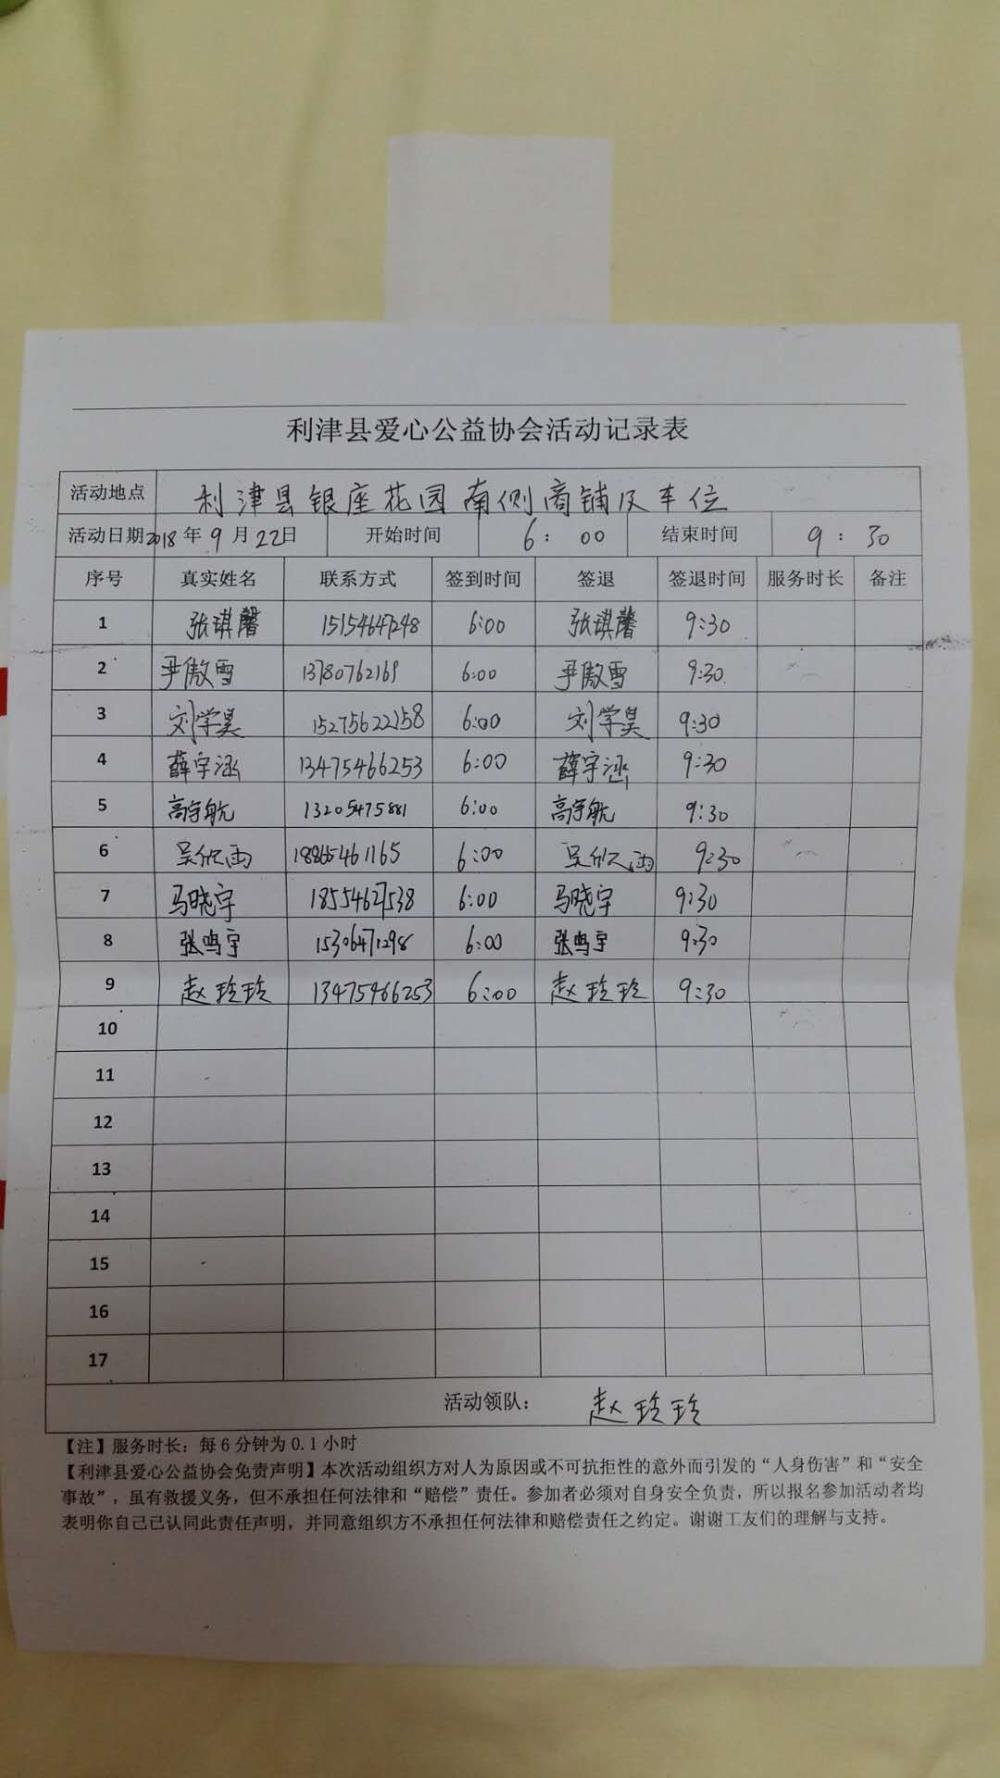 利津县爱心公益协会活动记录表
活动地点 利津县银座花园南侧商铺及车位
活动日期 2018年 9月 22日 开始时间 6: 00 结束时间 9: 30
序号 真实姓名 联系方式 签到时间 签退 签退时间 服务时长 备注
1 张琪馨 15154647248 6:00 张琪馨 9:30
2 尹傲雪 13780762169 6:00 尹傲雪 9:30
3 刘学昊 15275622158 6:00 刘学昊 9:30
4 薛宇涵 13475466253 6:00 薛宇涵 9:30
5 高宇航 13205475881 6:00 高宇航 9:30
6 吴欣雨 18865461165 6:00 吴欣雨 9:30
7 马晓宇 18554627538 6:00 马晓宇 9:30
8 张鸣宇 15306471298 6:00 张鸣宇 9:30
9 赵玲玲 13475466253 6:00 赵玲玲 9:30
10
11
12
13
14
15
16
17
活动领队: 赵玲玲
【注】服务时长:每6分钟为0.1小时
【利津县爱心公益协会免责声明】本次活动组织方对人为原因或不可抗拒性的意外而引发的“人身伤害”和“安全
事故”,虽有救援义务,但不承担任何法律和“赔偿”责任。参加者必须对自身安全负责,所以报名参加活动者均
表明你自己已认同此责任声明,并同意组织方不承担任何法律和赔偿责任之约定。谢谢工友们的理解与支持。